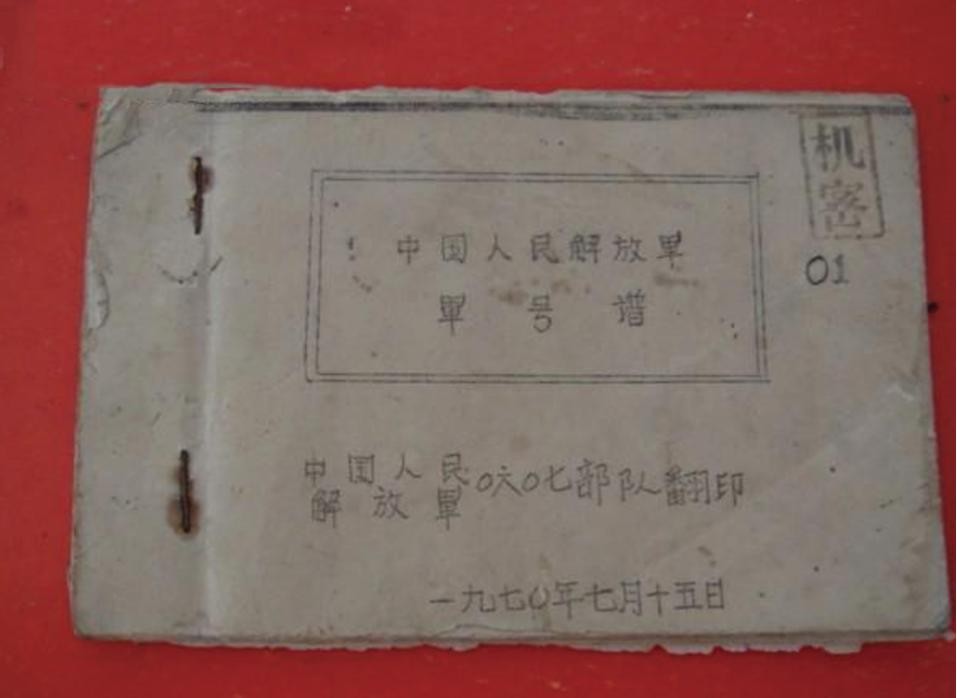 机密
01
中国人民解放军
军号谱
中国人民
解放军
0六0七部队翻印
一九七0年七月十五日